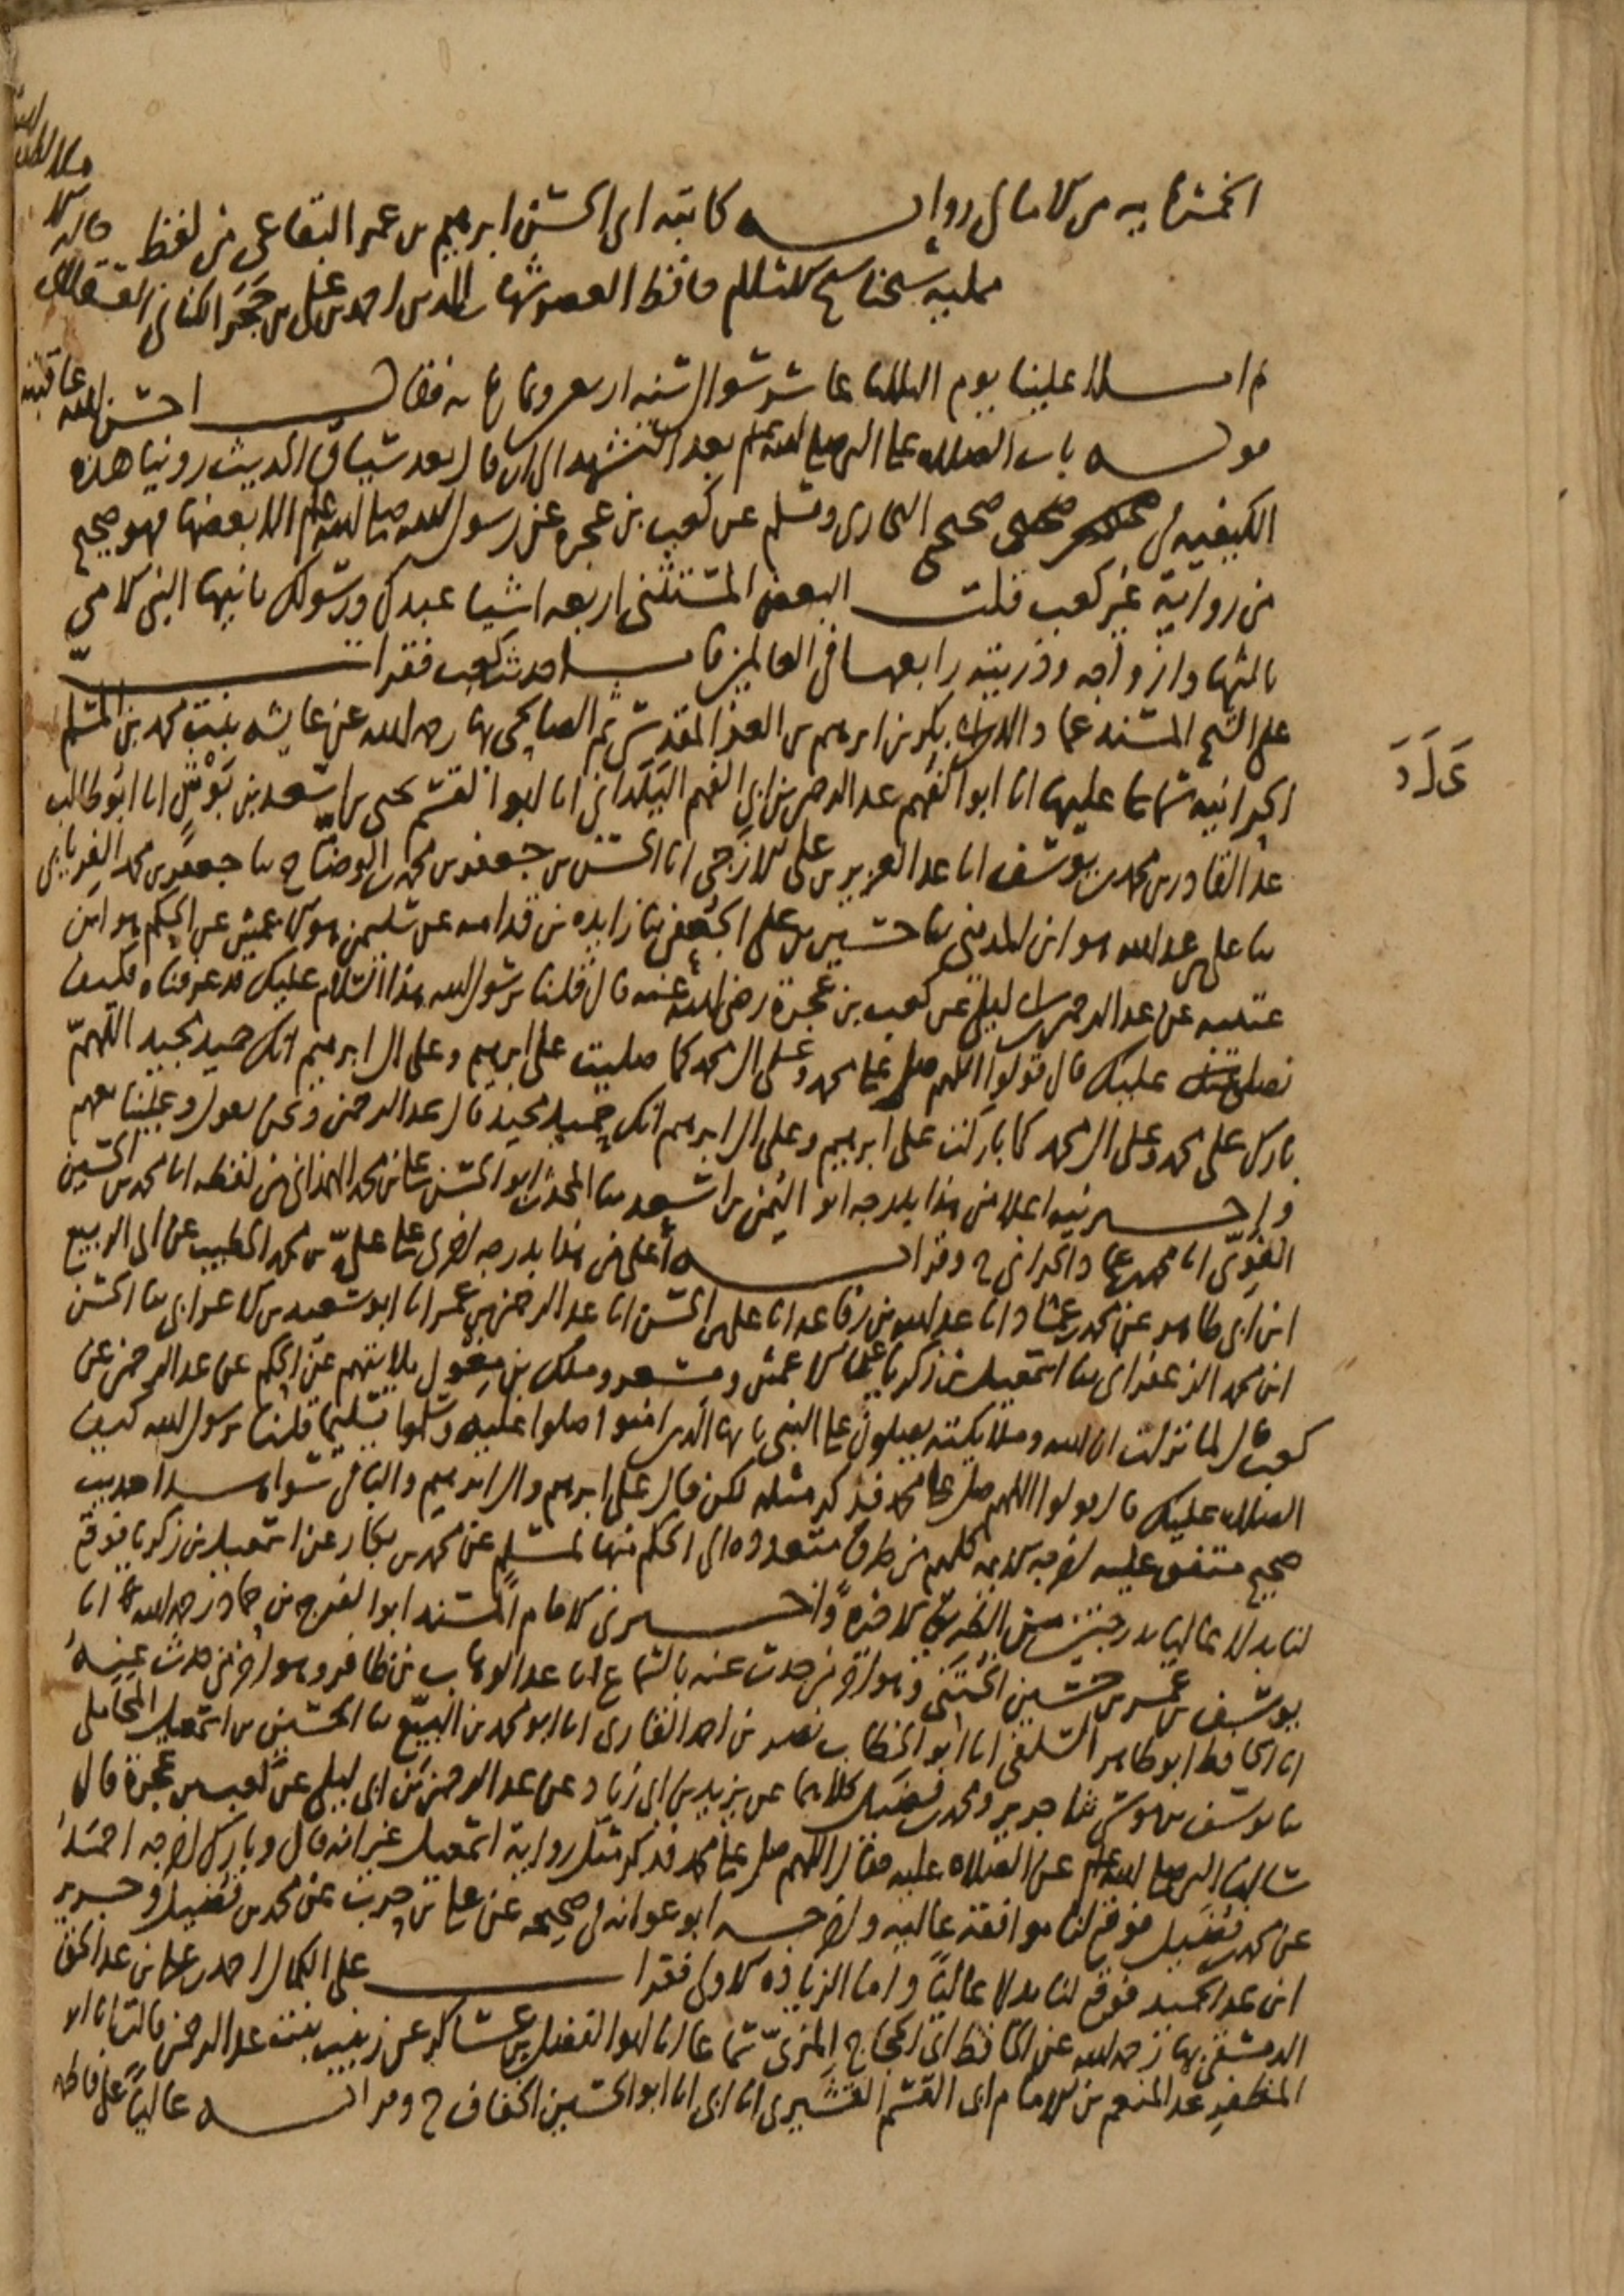 الخمشاييه من الامالي رواية كاتبه ابي الحسن ابرهيم بن عمر البقاعي من لفظ
ممليه شيخنا شيخ الاسلام حافظ العصر شهاب الدين احمد بن علي بن حجر الكناني العسقلاني
ثم املا علينا يوم الثلثا عاشر شوال سنه اربعين وثماني مايه فقال احسن الله عاقبته
قوله باب الصلاه على النبي صلى الله عليه وسلم بعد التشهد الى ان قال بعد سياق الحديث روينا هذه
الكيفيه في صحيح البخاري ومسلم عن كعب بن عجره عن رسول الله صلى الله عليه وسلم الا بعضها فهو صحيح
من رواية غير كعب قلت البعض المستثنى اربعه اشيا عبدك ورسولك ثانيها النبي الامي
ثالثها وازواجه وذريته رابعها في العالمين فاما حديث كعب فقرات
على الشيخ المسند عماد الدين ابي بكر بن ابرهيم بن العز المقدسي ثم الصالحي بها رحمه الله عن عايشه بنت محمد بن المسلم
الحرانيه سماعا عليها انا ابو الفهم عبد الرحمن بن ابي الفهم اليلداني انا ابو القسم يحيى بن اسعد بن بوش انا ابو طالب
عبد القادر بن محمد بن يوسف انا عبد العزيز بن علي الازجي انا الحسن بن جعفر بن محمد بن الوضاح ثنا جعفر بن محمد الفريابي
ثنا علي بن عبد الله هو ابن المديني ثنا حسين بن علي الجعفي ثنا زايده بن قدامه عن سليمن هو الاعمش عن الحكم هو ابن
عتيبه عن عبد الرحمن بن ابي ليلى عن كعب بن عجرة رضي الله عنه قال قلنا يرسول الله هذا السلام عليك قد عرفناه فكيف
نصلي عليك قال قولوا اللهم صل على محمد وعلى ال محمد كما صليت على ابرهيم وعلى ال ابرهيم انك حميد مجيد اللهم
بارك على محمد وعلى ال محمد كما باركت على ابرهيم وعلى ال ابرهيم انك حميد مجيد قال عبد الرحمن ونحن نقول وعلينا معهم
واخبرنيه اعلا من هذا بدرجه ابو اليمن بن اسعد ثنا المحدث ابو الحسن علي بن محمد الهمداني من لفظه انا محمد بن الحسين
الفوي انا محمد بن عماد الحراني ح وقراته أعلى من هذا بدرجه اخرى على علي بن محمد الخطيب عن ابي الربيع
ابن ابي طاهر عن محمد بن عماد انا عبد الله بن رفاعه انا علي بن الحسن انا عبد الرحمن بن عمر انا ابو سعيد بن الاعرابي ثنا الحسن
ابن محمد الزعفراني ثنا اسمعيل بن زكريا ثنا الاعمش ومسعر وملك بن مغول ثلاثتهم عن الحكم عن عبد الرحمن عن
كعب قال لما نزلت ان الله وملايكته يصلون على النبي يايها الذين امنوا صلوا عليه وسلموا تسليما قلنا يرسول الله كيف
الصلاه عليك قال قولوا اللهم صل على محمد فذكر مثله لكن قال على ابرهيم وال ابرهيم والباقي سواء هذا حديث
صحيح متفق عليه اخرجه الائمه كلهم من طرق متعدده الى الحكم منها لمسلم عن محمد بن بكار عن اسمعيل بن زكريا فوقع
لنا بدلا عاليا بدرجتين من الطريق الاخيرة واخبرني الامام المسند ابو الفرج بن حماد رحمه الله انا
يوسف بن عمر بن حسين الختني وهو اخر من حدث عنه بالسماع انا عبد الوهاب بن ظافر وهو اخر من حدث عنه
انا الحافظ ابو طاهر السلفي انا ابو الخطاب نصر بن احمد القاري انا ابو محمد بن البيع ثنا الحسين بن اسمعيل المحاملي
ثنا يوسف بن موسى ثنا جرير ومحمد بن فضيل كلاهما عن يزيد بن ابي زياد عن عبد الرحمن بن ابي ليلى عن كعب بن عجرة قال
سالنا النبي صلى الله عليه وسلم عن الصلاه عليه فقال اللهم صل على محمد فذكر مثل رواية اسمعيل غير انه قال وبارك اخرجه احمد
عن محمد بن فضيل فوقع لنا موافقة عاليه واخرجه ابو عوانه في صحيحه عن علي بن حرب عن محمد بن فضيل وجرير
ابن عبد الحميد فوقع لنا بدلا عاليا واما الزيادة الاولى فقرات على الكمال احمد بن علي بن عبد الحق
الدمشقي بها رحمه الله عن الحافظ ابي الحجاج المزي سماعا انا ابو الفضل بن عساكر عن زينب بنت عبد الرحمن قالت انا ابو
المظفر عبد المنعم بن الامام ابي القسم القشيري انا ابي انا ابو الحسين الخفاف ح وقراته عاليا على فاطمه